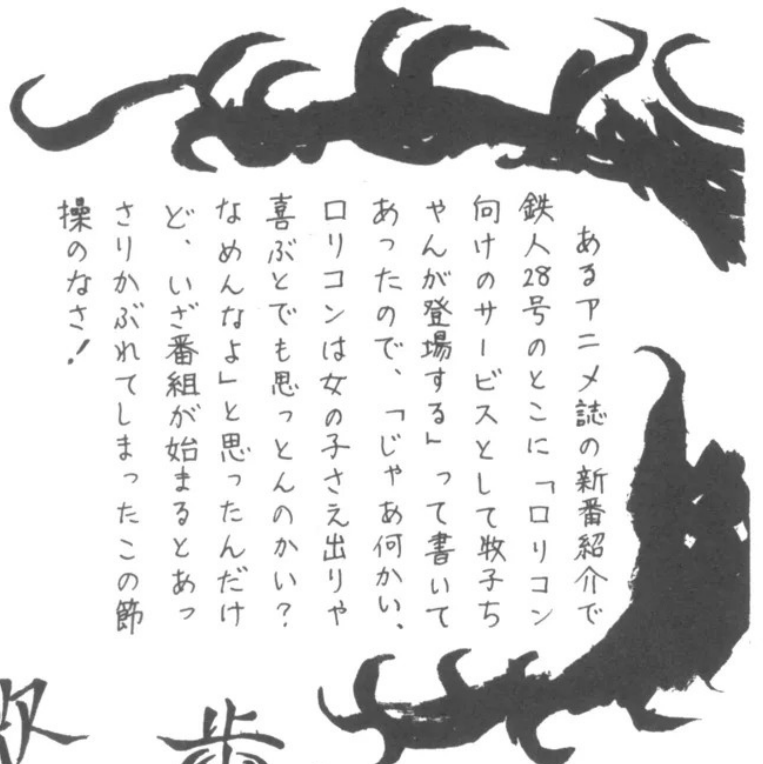 あるアニメ誌の新番組紹介で
鉄人28号のとこに「ロリコン
向けのサービスとして牧子ち
ゃんが登場する」って書いて
あったので、「じゃあ何かい、
ロリコンは女の子さえ出りゃ
喜ぶとでも思っとんのかい?
なめんなよ」と思ったんだけ
ど、いざ番組が始まるとあっ
さりかぶれてしまったこの節
操のなさ!